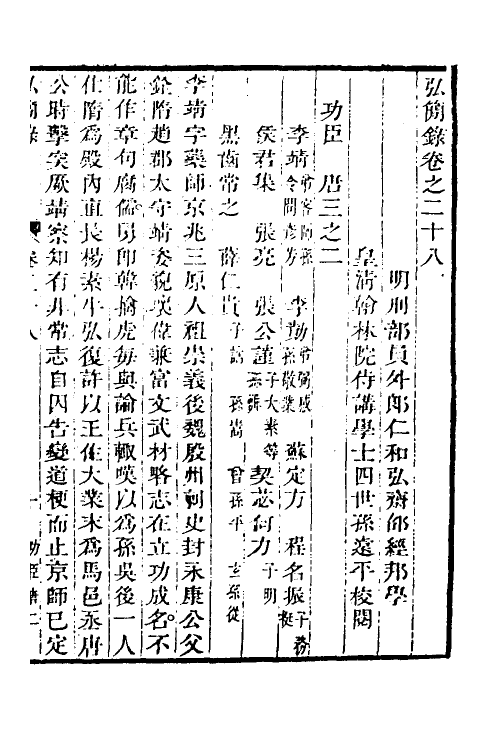 弘簡錄卷之二十八
明刑部員外郎仁和弘齋邵經邦學
皇清翰林院侍講學士四世孫遠平校閱
功臣　唐三之二
李靖　弟客師孫令問彥芳　李勣　弟弼感孫敬業　蘇定方　程名振　子務挺
侯君集　張亮　張公謹　子大素等孫　契苾何力　子明
黑齒常之　薛仁貴　子訥　孫嵩　曾孫平　玄孫從
李靖字藥師京兆三原人祖崇義後魏殷州刺史封永康公父
詮隋趙郡太守靖姿貌瑰偉兼富文武材略志在立功成名不
能作章句腐儒舅卽韓擒虎每與論兵輒嘆以爲孫吳後一人
仕隋爲殿內直長楊素牛弘復許以王佐大業末爲馬邑丞唐
公時擊突厥靖察知有非常志自囚告變道梗而止京師已定
弘簡錄　卷二十八　一　功臣